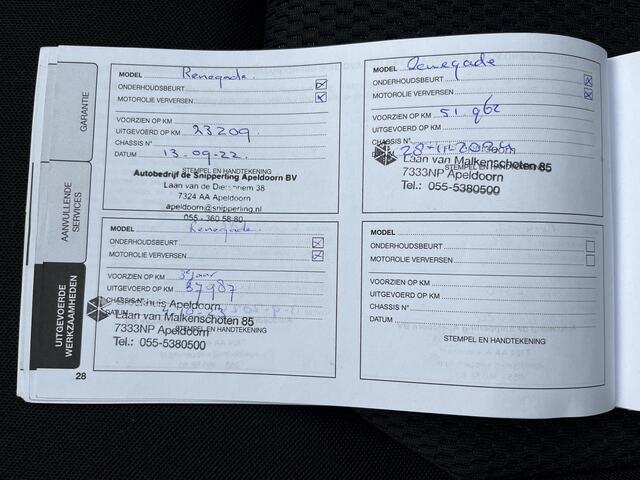 GARANTIE
AANVULLENDE
SERVICES
UITGEVOERDE
WERKZAAMHEDEN
MODEL Renegade.
ONDERHOUDSBEURT
MOTOROLIE VERVERSEN
VOORZIEN OP KM
UITGEVOERD OP KM 23209.
CHASSIS N°
DATUM 13-09-22.
STEMPEL EN HANDTEKENING
Autobedrijf de Snipperling Apeldoorn BV
Laan van de Dierenhem 38
7324 AA Apeldoorn
apeldoorn@snipperling.nl
055 - 360 58 80
MODEL Renegade
ONDERHOUDSBEURT
MOTOROLIE VERVERSEN
VOORZIEN OP KM
UITGEVOERD OP KM 51.962
CHASSIS N°
DATUM 28-11-2024
Apeldoorn
Laan van Malkenschoten 85
STEMPEL EN HANDTEKENING
7333NP Apeldoorn
Tel.: 055-5380500
MODEL Renegade.
ONDERHOUDSBEURT
MOTOROLIE VERVERSEN
VOORZIEN OP KM 3e jaar
UITGEVOERD OP KM 37987
CHASSIS N°
Apeldoorn
DATUM
Laan van Malkenschoten 85
7333NP Apeldoorn
STEMPEL EN HANDTEKENING
Tel.: 055-5380500
MODEL
ONDERHOUDSBEURT
MOTOROLIE VERVERSEN
VOORZIEN OP KM
UITGEVOERD OP KM
CHASSIS N°
DATUM
STEMPEL EN HANDTEKENING
28